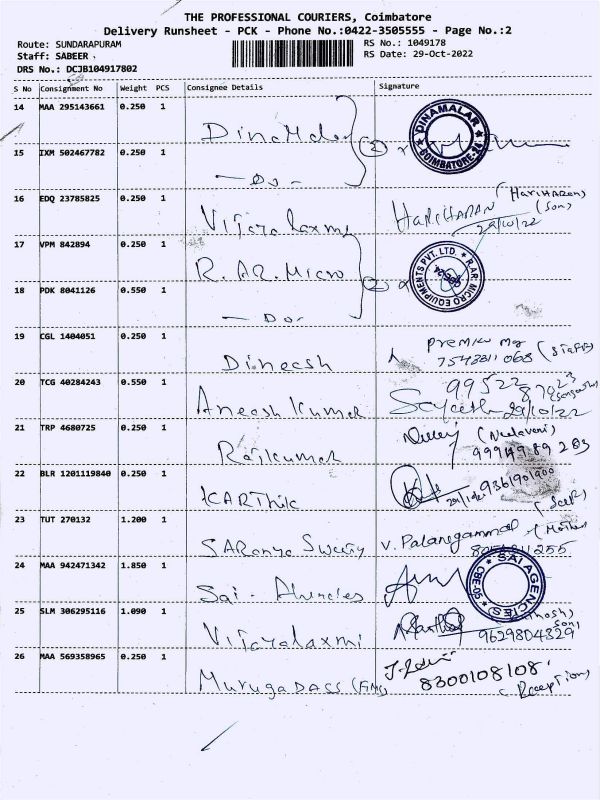 THE PROFESSIONAL COURIERS, Coimbatore
Delivery Runsheet - PCK - Phone No.:0422-3505555 - Page No.:2
Route: SUNDARAPURAM
RS No.: 1049178
Staff: SABEER
RS Date: 29-Oct-2022
DRS No.: DCJB104917802
S No Consignment No Weight PCS Consignee Details Signature
14 MAA 295143661 0.250 1 Dinamalar DINAMALAR COIMBATORE
15 IXM 502467782 0.250 1 - Do - 2
16 EDQ 23785825 0.250 1 Vijayalaxmi HARIHARAN (HARIHARAN) (Son) 29/10/22
17 VPM 842894 0.250 1 R. AR. Micro R.AR. MICRO EQUIPMENTS PVT. LTD.
18 PDK 8041126 0.550 1 - Do - 2
19 CGL 1404051 0.250 1 Dineesh (Staff)
20 TCG 40284243 0.550 1 Aneesh Kumar 29/10/22
21 TRP 4680725 0.250 1 Rajkumar (Neelaveni)
22 BLR 1201119840 0.250 1 KARThik 9361901900 (Self)
23 TUT 270132 1.200 1 SARanya Sweety V. Palaniyammal (Mother)
24 MAA 942471342 1.850 1 Sai - Agencies SAI AGENCIES
25 SLM 306295116 1.090 1 Vijayalaxmi Son) 9629804329
26 MAA 569358965 0.250 1 Muruga DASS 8300108108
(Reception)